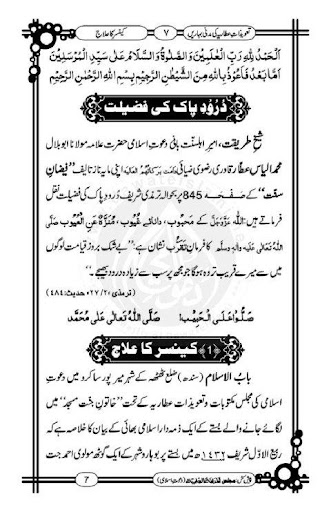 تعویذاتِ عطاریہ کی مدنی بہاریں ۷ کینسر کا علاج
اَلْحَمْدُ لِلّٰہِ رَبِّ الْعٰلَمِیْنَ وَالصَّلٰوۃُ وَالسَّلَامُ عَلٰی سَیِّدِ الْمُرْسَلِیْنَ
اَمَّا بَعْدُ فَاَعُوْذُ بِاللّٰہِ مِنَ الشَّیْطٰنِ الرَّجِیْمِ بِسْمِ اللّٰہِ الرَّحْمٰنِ الرَّحِیْمِ
دُرُود پاک کی فضیلت
شیخِ طریقت، امیرِ اہلسنّت بانیٔ دعوتِ اسلامی حضرت علامہ مولانا ابو بلال
محمد الیاس عطار قادری رضوی ضیائی دَامَتْ بَرَکَاتُہُمُ الْعَالِیَہ اپنی مایہ ناز تالیف ”فیضانِ
سنت“ کے صفحہ 845 پر بحوالہ ترمذی شریف دُرودِ پاک کی فضیلت نقل
فرماتے ہیں: اللہ عَزَّوَجَلَّ کے محبوب، دانائے غُیوب، مُنَزَّہٌ عَنِ الْعُیُوب صلَّی
اللہُ تعالیٰ علیہ واٰلہٖ وسلَّم کا فرمانِ تقرُّب نشان ہے: ”بے شک بروزِ قیامت لوگوں
میں سے میرے قریب تر وہ ہوگا جو مجھ پر سب سے زیادہ دُرود بھیجے۔“
(ترمذی ۲/ ۲۷ حدیث: ۴۸۴)
صَلُّوْا عَلَی الْحَبِیْب! صَلَّی اللّٰہُ تَعَالٰی عَلٰی مُحَمَّد
﴿1﴾ کینسر کا علاج
بابُ الاسلام (سندھ) ضلع ٹھٹھہ کے شہر میر پور ساکرو میں دعوتِ
اسلامی کی مجلسِ مکتوبات و تعویذاتِ عطاریہ کے تحت ”خاتونِ جنت مسجد“ میں
لگائے جانے والے بستے کے ایک ذمہ دار اسلامی بھائی کے بیان کا خلاصہ ہے کہ
ربیع الاوّل شریف ۱۴۳۲ھ میں بستے پر بوہارو شہر کے ایک گوٹھ مولوی احمد جت
7 (دعوتِ اسلامی)